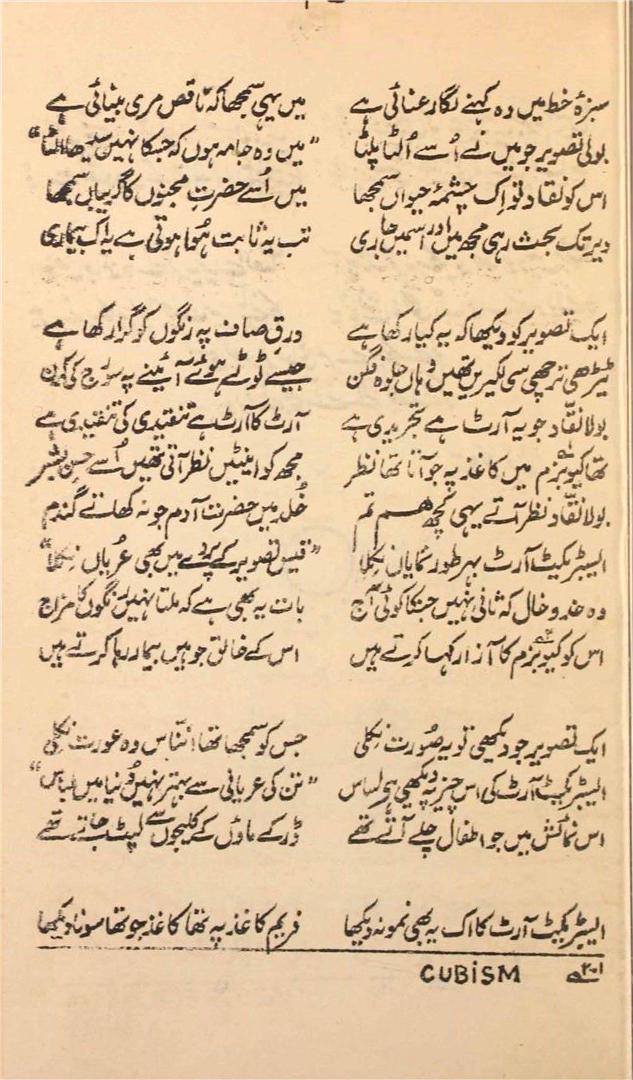 سبزۂ خط میں وہ کہنے لگا رعنائی ہے میں یہی سمجھا کہ ناقص مری بینائی ہے
بولی تصویر جو میں نے اُسے اُلٹا پلٹا "میں وہ جامہ ہوں کہ جسکا نہیں سیدھا الٹا"
اس کو نقاد تو اِک چشمۂ حیواں سمجھا میں اُسے حضرتِ مجنوں کا گریباں سمجھا
دیر تک بحث رہی مجھ میں اور اسمیں جاری تب یہ ثابت ہُوا ہوتی ہے یہ اک بیماری
ایک تصویر کو دیکھا کہ یہ کیا رکھا ہے ورقِ صاف پہ رنگوں کو گرا رکھا ہے
ٹیڑھی ترچھی سی لکیریں تھیں وہاں جلوہ فگن جیسے ٹوٹے ہوئے آئینے پہ سورج کی کرن
بولا نقّاد جو یہ آرٹ ہے تجریدی ہے آرٹ کا آرٹ ہے تنقیدی کی تنقیدی ہے
تھا کیوبزم میں کاغذ پہ جو آتا تھا نظر مجھ کو اینٹیں نظر آتی تھیں اُسے حسنِ بشر
بولا نقّاد نظر آتے یہی کچھ ہم تم خُلد میں حضرت آدم جو نہ کھاتے گندم
ایبسٹریکٹ آرٹ بہر طور نمایاں نکلا "قیس تصویر کے پردے میں بھی عُریاں نکلا"
وہ خدوخال کہ ثانی نہیں جسکا کوئی آج بات یہ بھی ہے کہ ملتا نہیں رنگوں کا مزاج
اس کو کیوبزم کا آزار کہا کرتے ہیں اس کے خالق جو ہیں بیمار رہا کرتے ہیں
ایک تصویر جو دیکھی تو یہ صُورت نکلی جس کو سمجھا تھا انّناس وہ عورت نکلی
ایبسٹریکٹ آرٹ کی اس چیز پہ دیکھی ہے اساس "تن کی عریانی سے بہتر نہیں دُنیا میں لباس"
اس نمائش میں جو اطفال چلے آتے تھے ڈر کے ماؤں کے کلیجوں سے لپٹ جاتے تھے
ایبسٹریکٹ آرٹ کا اک یہ بھی نمونہ دیکھا فریم کاغذ پہ تھا کاغذ جو تھا سونا دیکھا
۲۰۱ CUBISM